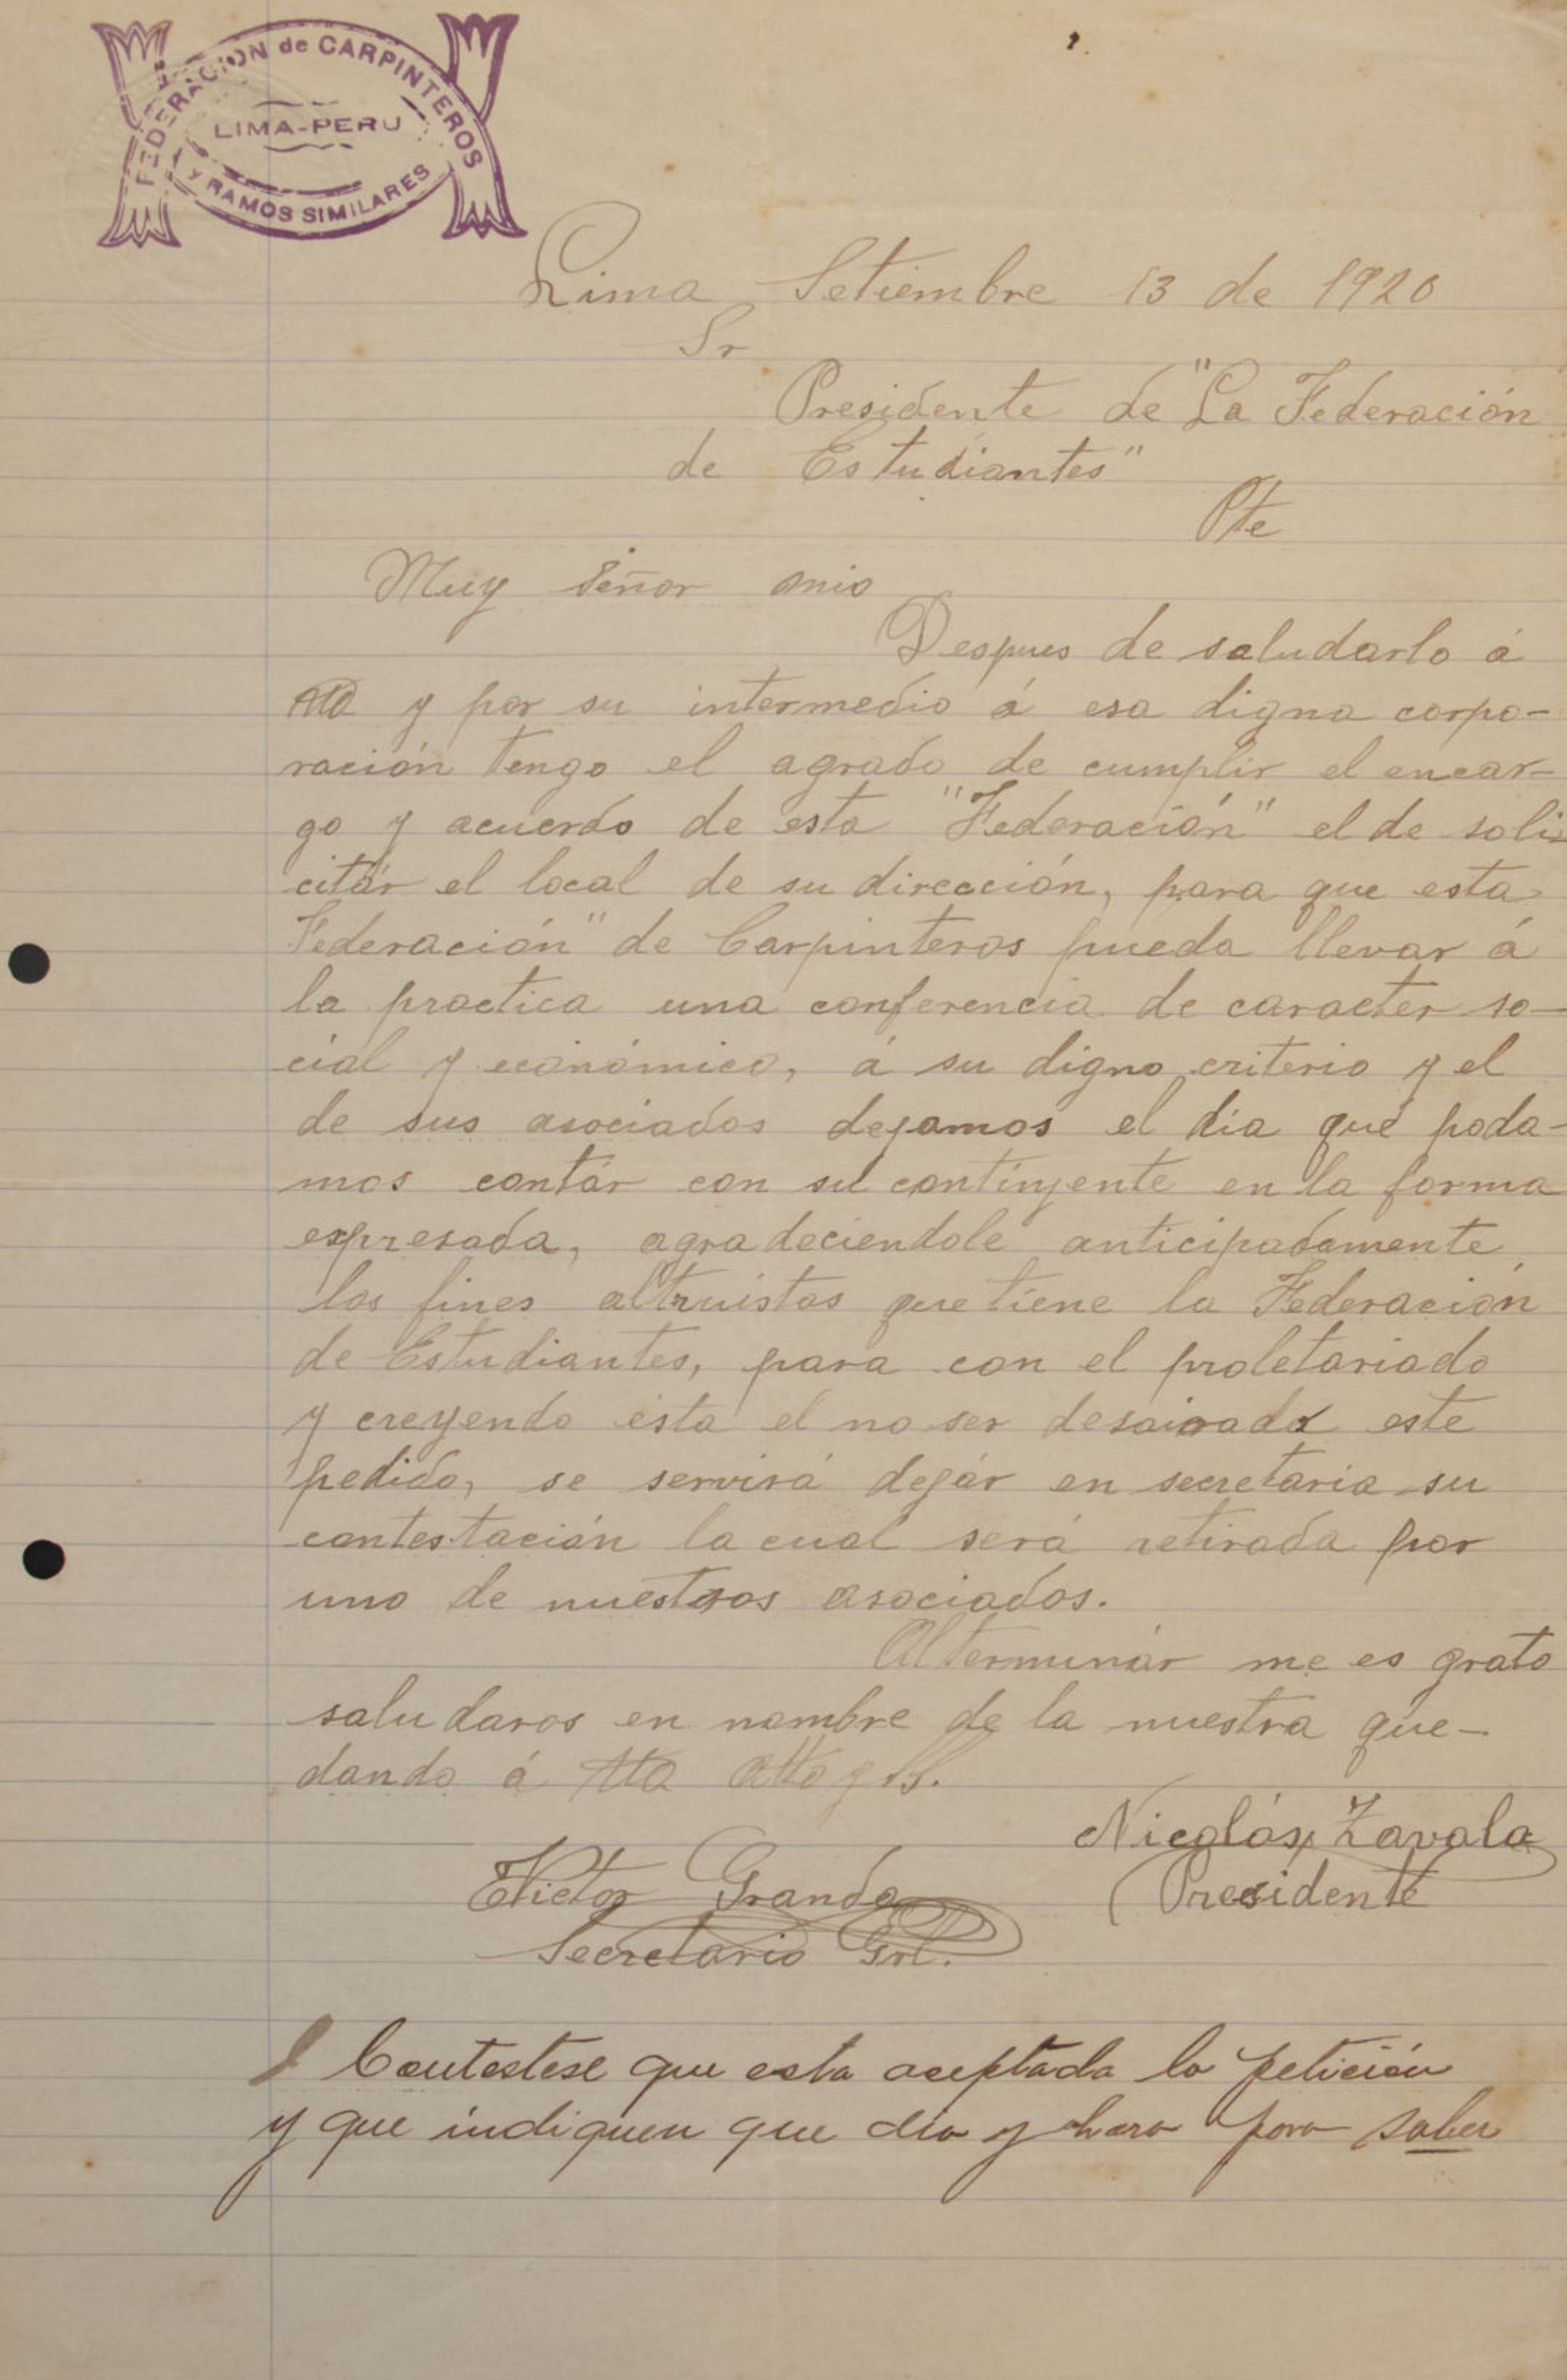 FEDERACION de CARPINTEROS
LIMA-PERU
y RAMOS SIMILARES
Lima Setiembre 13 de 1920
Sr
Presidente de "La Federación
de Estudiantes"
Pte
Muy señor mio
Despues de saludarlo á
y por su intermedio á esa digna corpo-
ración tengo el agrado de cumplir el encar-
go y acuerdo de esta "Federación" el de soli-
citár el local de su dirección, para que esta
Federación" de Carpinteros pueda llevar á
la practica una conferencia de caracter so-
cial y económico, á su digno criterio y el
de sus asociados dejamos el dia que poda-
mos contár con su continjente en la forma
expresada, agradeciendole anticipadamente
los fines altruistas que tiene la Federación
de Estudiantes, para con el proletariado
y creyendo esta el no ser desairado este
pedido, se servirá dejár en secretaria su
contestación la cual será retirada por
uno de nuestros asociados.
Al terminár me es grato
saludaros en nombre de la nuestra que-
dando á
Nicolás Zavala
Presidente
Victor Granda
Secretario Grl.
Contestese que esta aceptada la petición
y que indiquen que dia y hora para saber